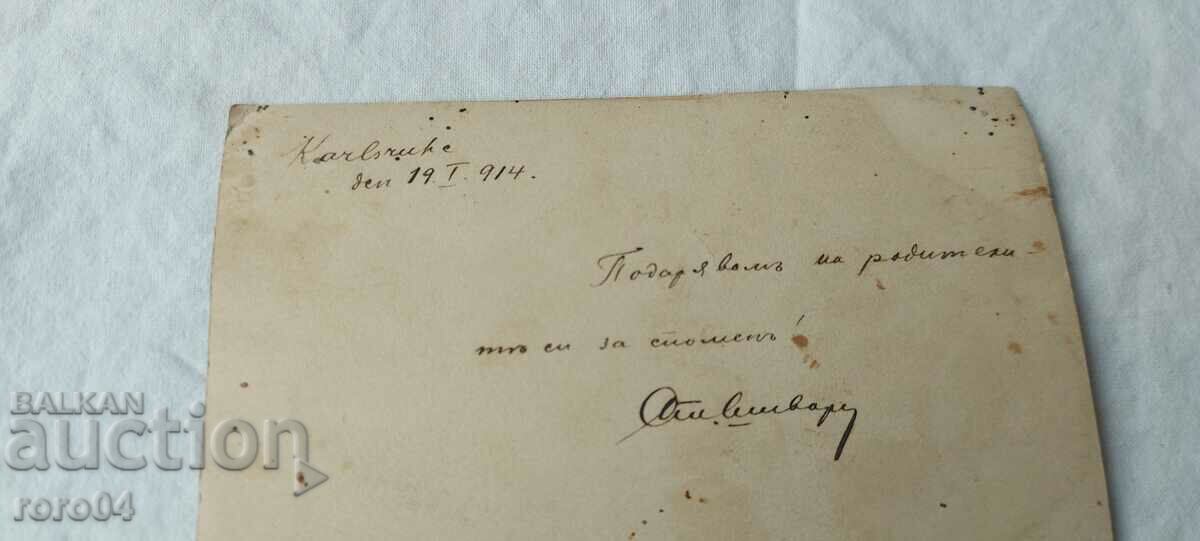 Karlsruhe
ден 19 I. 914.
Подарявамъ на родители-
тѣ си за споменъ!
BALKAN
auction
roro04